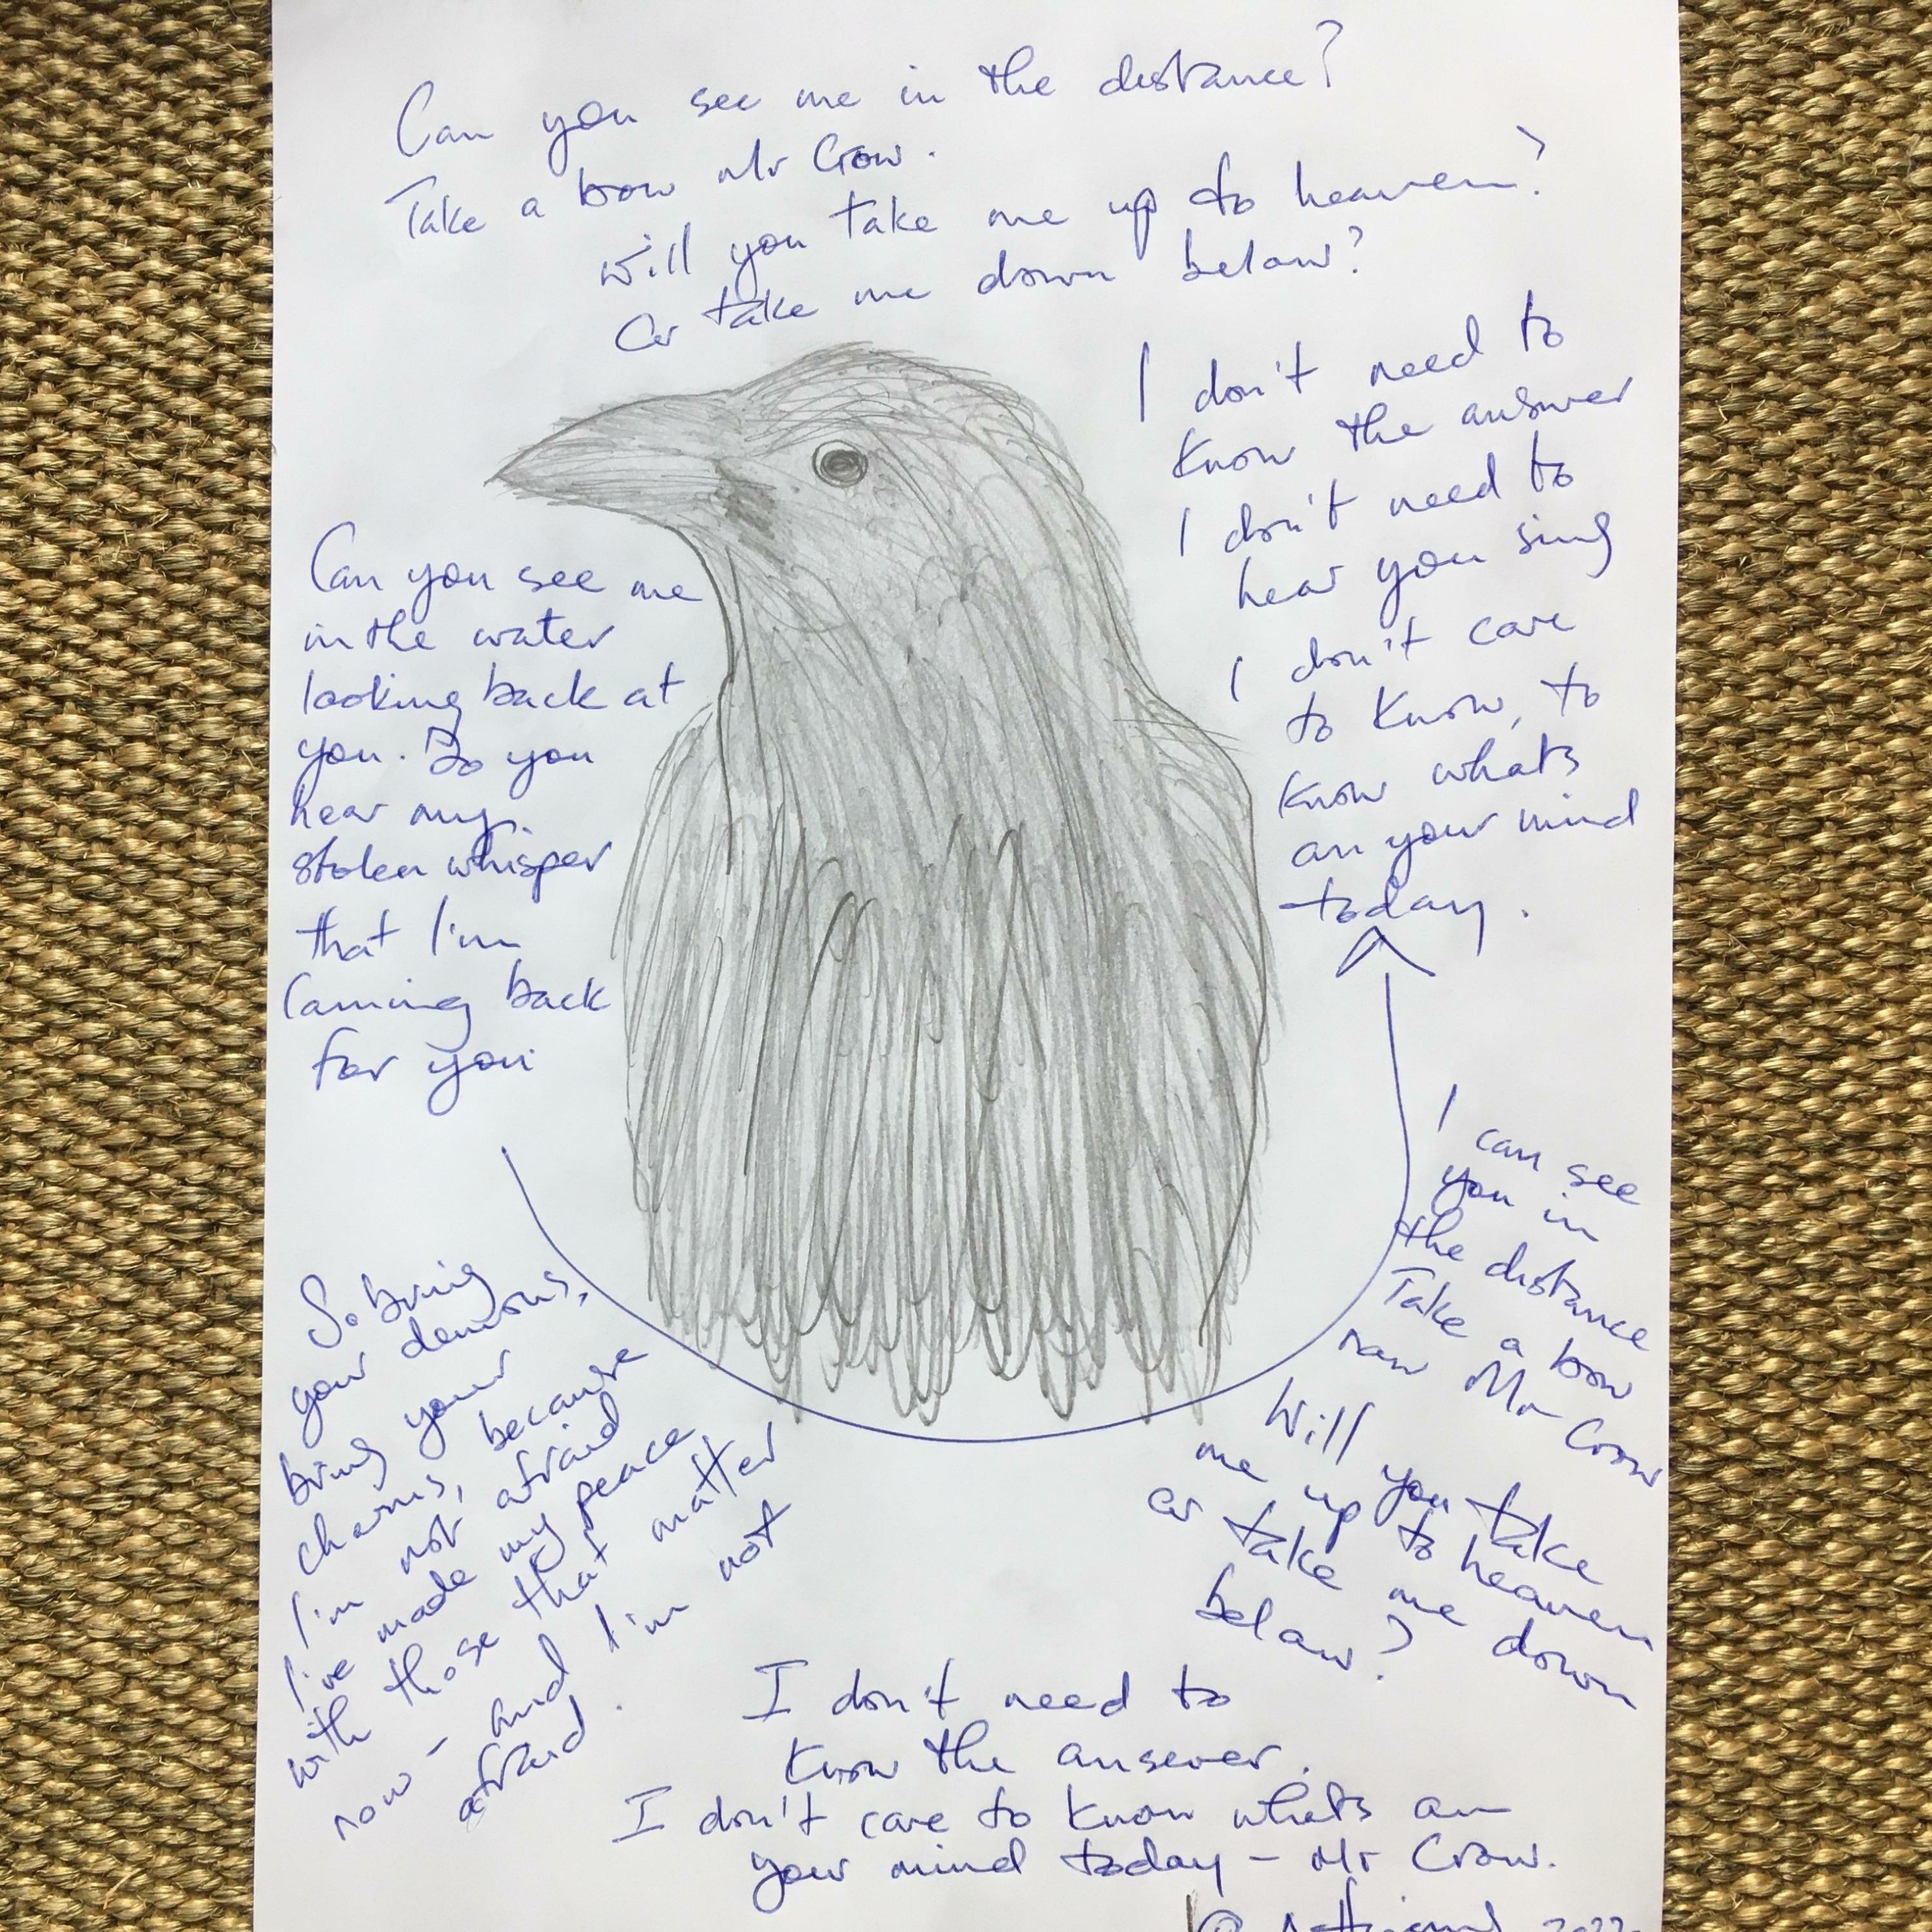 Can you see me in the distance?
Take a bow Mr Crow.
Will you take me up to heaven?
Or take me down below?
I don't need to
know the answer
I don't need to
hear you sing
I don't care
to know, to
know whats
on your mind
today.
Can you see me
in the water
looking back at
you. Do you
hear my
stolen whisper
that I'm
Coming back
for you
So bring
your demons,
bring your
charms, because
I'm not afraid
I've made my peace
with those that matter
now - And I'm not
afraid.
I can see
you in
the distance
Take a bow
now Mr Crow
Will you take
me up to heaven
or take me down
below?
I don't need to
know the answer.
I don't care to know whats on
your mind today - Mr Crow.
© 2022